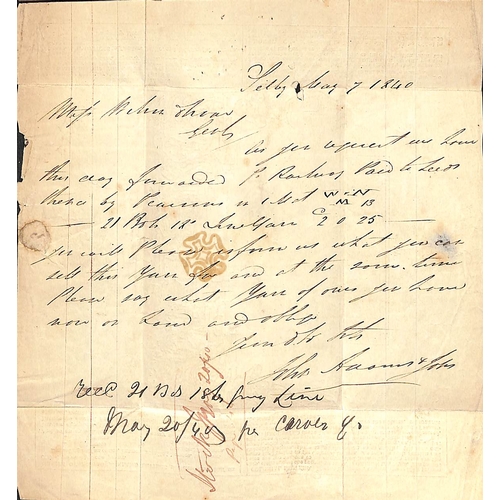 Selby May 7 1840
Mess
Gents
As per request we have
this day forwarded P Railway Paid to Leeds
thence by in 1 Mat W & N
13
21 Bds 18s Line Yarn C 2 0 25
you will Please inform us what you can
sell this Yarn for and at the same time
Please say what Yarn of ours you have
now on hand and oblige
Yours &c
John & Sons
recd 21 Bds 18s Line
May 20/40 per Carver &c